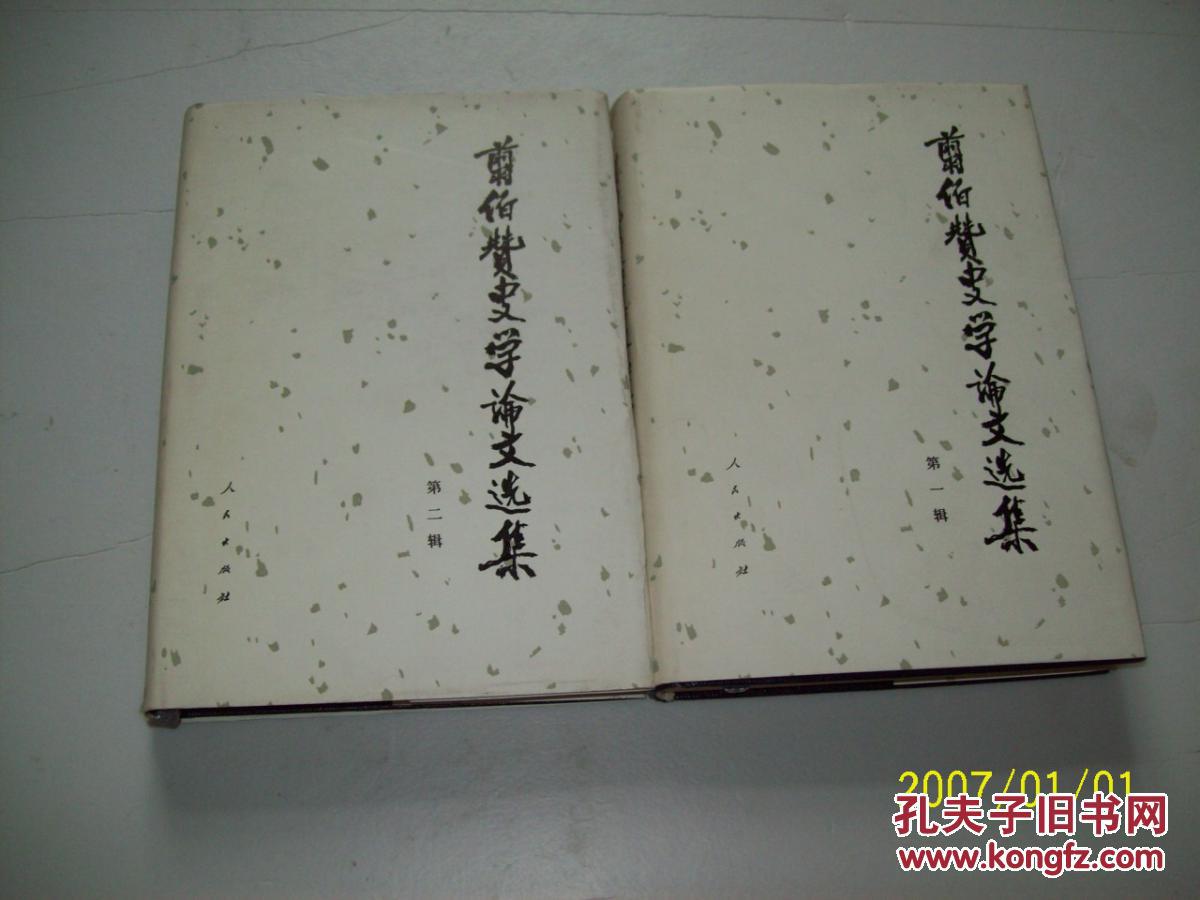 翦伯赞史学论文选集
第二辑
人民出版社
翦伯赞史学论文选集
第一辑
人民出版社
2007/01/01
孔夫子旧书网
www.kongfz.com